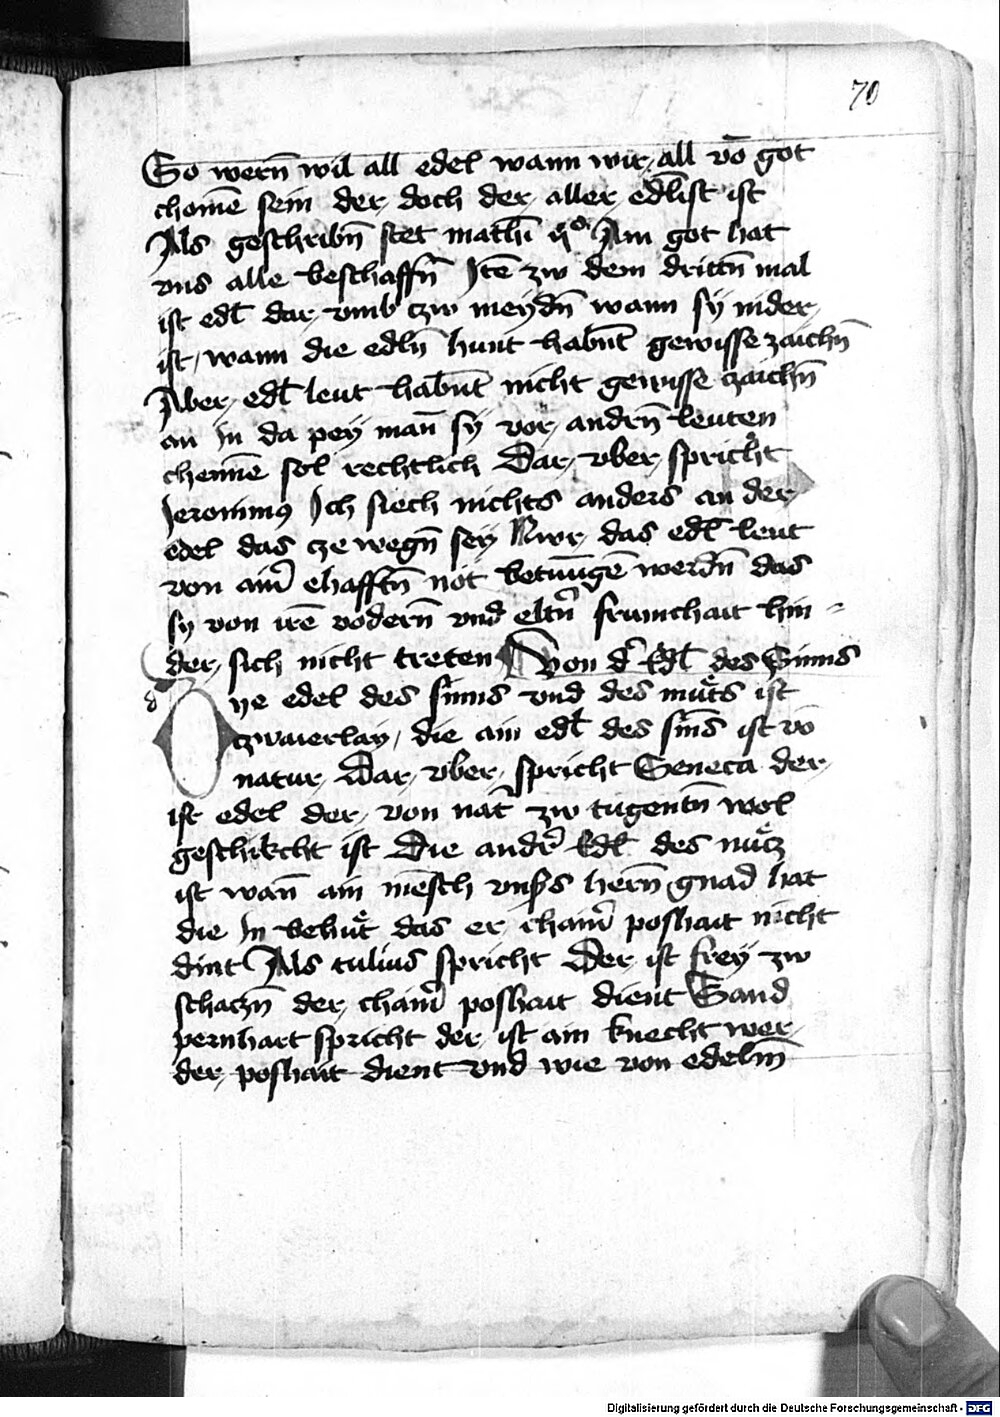 70
So wern̄ wil all edel wann wir all vō got
chomē sein der doch der aller edlist ist
Als geschribn̄ stet math̄i Ain got hat
vns alle beschaffn̄ Jtē zw dem drittn̄ mal
ist edl dar vmb czw meydn̄ wann sy nider
ist wann die edln̄ hunt habn̄t gewisse zaichn̄
Aber edl leut habn̄t nicht gewisse czaichn̄
an in da pey man̄ sy vor andrn̄ leuten
chennē sol rechtlich Dar vber spricht
Jeronimus Ich siech nichts anders an der
edel das cze wegn̄ sey Nwr das edl leut
von ainr ehafftn̄ not betwungē werdn̄ das
sy von irē vodern̄ vnd eltrn̄ frumchait hin =
der sich nicht treten Von dr Edl des Sinns
d ye edel des sinns vnd des muets ist
czwaierlay die ain edl des sinns ist vō
natur Dar vber spricht Seneca der
ist edel der von natr zw tugentn̄ wol
geschikcht ist Die andr Edl des muetz
ist wan̄ ain mēsch vnsers hern̄ gnad hat
die in behuet das er chainr poshait nicht
dint Als tulius spricht Der ist frey zw
schaczn̄ der chainr poshait dient Sand
pernhart spricht der ist ain knecht wer
der poshait dient vnd wie von edelm̄
Digitalisierung gefördert durch die Deutsche Forschungsgemeinschaft - DFG